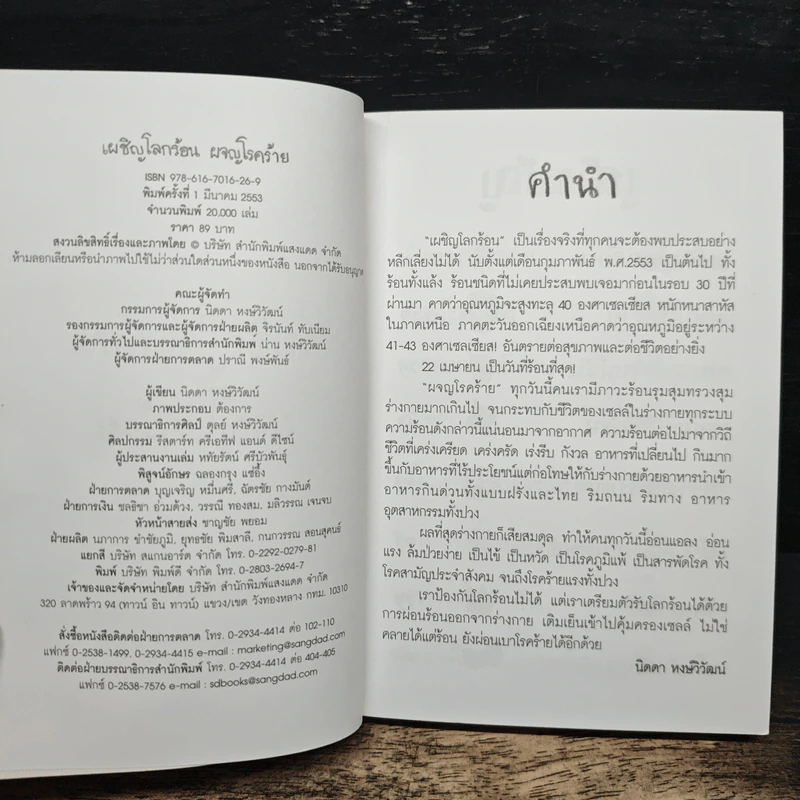 เผชิญโลกร้อน ผจญโรคร้าย
ISBN 978-616-7016-26-9
พิมพ์ครั้งที่ 1 มีนาคม 2553
จำนวนพิมพ์ 20,000 เล่ม
ราคา 89 บาท
สงวนลิขสิทธิ์เรื่องและภาพโดย © บริษัท สำนักพิมพ์แสงแดด จำกัด
ห้ามลอกเลียนหรือนำภาพไปใช้ไม่ว่าส่วนใดส่วนหนึ่งของหนังสือ นอกจากได้รับอนุญาต
คณะผู้จัดทำ
กรรมการผู้จัดการ นิดดา หงษ์วิวัฒน์
รองกรรมการผู้จัดการและผู้จัดการฝ่ายผลิต จิรนันท์ ทับเนียม
ผู้จัดการทั่วไปและบรรณาธิการสำนักพิมพ์ น่าน หงษ์วิวัฒน์
ผู้จัดการฝ่ายการตลาด ปราณี พงษ์พันธ์
ผู้เขียน นิดดา หงษ์วิวัฒน์
ภาพประกอบ ต้องการ
บรรณาธิการศิลป์ ดุลย์ หงษ์วิวัฒน์
ศิลปกรรม รีสตาร์ท ครีเอทีฟ แอนด์ ดีไซน์
ผู้ประสานงานเล่ม หทัยรัตน์ ศรีบัวพันธุ์
พิสูจน์อักษร ฉลองกรุง แซ่อึ้ง
ฝ่ายการตลาด บุญเจริญ หมื่นศรี, ฉัตรชัย กางมันต์
ฝ่ายการเงิน ชลธิชา อ่วมด้วง, วรรณี ทองสม, มลิวรรณ เจนจบ
หัวหน้าสายส่ง ชาญชัย พยอม
ฝ่ายผลิต นภาการ ขำชัยภูมิ, ยุทธชัย พิมสาลี, กนกวรรณ สอนสุคนธ์
แยกสี บริษัท สแกนอาร์ต จำกัด โทร. 0-2292-0279-81
พิมพ์ บริษัท พิมพ์ดี จำกัด โทร. 0-2803-2694-7
เจ้าของและจัดจำหน่ายโดย บริษัท สำนักพิมพ์แสงแดด จำกัด
320 ลาดพร้าว 94 (ทาวน์ อิน ทาวน์) แขวง/เขต วังทองหลาง กทม. 10310
สั่งซื้อหนังสือติดต่อฝ่ายการตลาด โทร. 0-2934-4414 ต่อ 102-110
แฟกซ์ 0-2538-1499, 0-2934-4415 e-mail : marketing@sangdad.com
ติดต่อฝ่ายบรรณาธิการสำนักพิมพ์ โทร. 0-2934-4414 ต่อ 404-405
แฟกซ์ 0-2538-7576 e-mail : sdbooks@sangdad.com
คำนำ
“เผชิญโลกร้อน” เป็นเรื่องจริงที่ทุกคนจะต้องพบประสบอย่าง
หลีกเลี่ยงไม่ได้ นับตั้งแต่เดือนกุมภาพันธ์ พ.ศ.2553 เป็นต้นไป ทั้ง
ร้อนทั้งแล้ง ร้อนชนิดที่ไม่เคยประสบพบเจอมาก่อนในรอบ 30 ปีที่
ผ่านมา คาดว่าอุณหภูมิจะสูงทะลุ 40 องศาเซลเซียส หนักหนาสาหัส
ในภาคเหนือ ภาคตะวันออกเฉียงเหนือคาดว่าอุณหภูมิอยู่ระหว่าง
41-43 องศาเซลเซียส! อันตรายต่อสุขภาพและต่อชีวิตอย่างยิ่ง
22 เมษายน เป็นวันที่ร้อนที่สุด!
“ผจญโรคร้าย” ทุกวันนี้คนเรามีภาวะร้อนรุมสุมทรวงสุม
ร่างกายมากเกินไป จนกระทบกับชีวิตของเซลล์ในร่างกายทุกระบบ
ความร้อนดังกล่าวนี้แน่นอนมาจากอากาศ ความร้อนต่อไปมาจากวิถี
ชีวิตที่เคร่งเครียด เคร่งครัด เร่งรีบ กังวล อาหารที่เปลี่ยนไป กินมาก
ขึ้นกับอาหารที่ไร้ประโยชน์แต่ก่อโทษให้กับร่างกายด้วยอาหารนำเข้า
อาหารกินด่วนทั้งแบบฝรั่งและไทย ริมถนน ริมทาง อาหาร
อุตสาหกรรมทั้งปวง
ผลที่สุดร่างกายก็เสียสมดุล ทำให้คนทุกวันนี้อ่อนแอลง อ่อน
แรง ล้มป่วยง่าย เป็นไข้ เป็นหวัด เป็นโรคภูมิแพ้ เป็นสารพัดโรค ทั้ง
โรคสามัญประจำสังคม จนถึงโรคร้ายแรงทั้งปวง
เราป้องกันโลกร้อนไม่ได้ แต่เราเตรียมตัวรับโลกร้อนได้ด้วย
การผ่อนร้อนออกจากร่างกาย เติมเย็นเข้าไปคุ้มครองเซลล์ ไม่ใช่
คลายได้แต่ร้อน ยังผ่อนเบาโรคร้ายได้อีกด้วย
นิดดา หงษ์วิวัฒน์